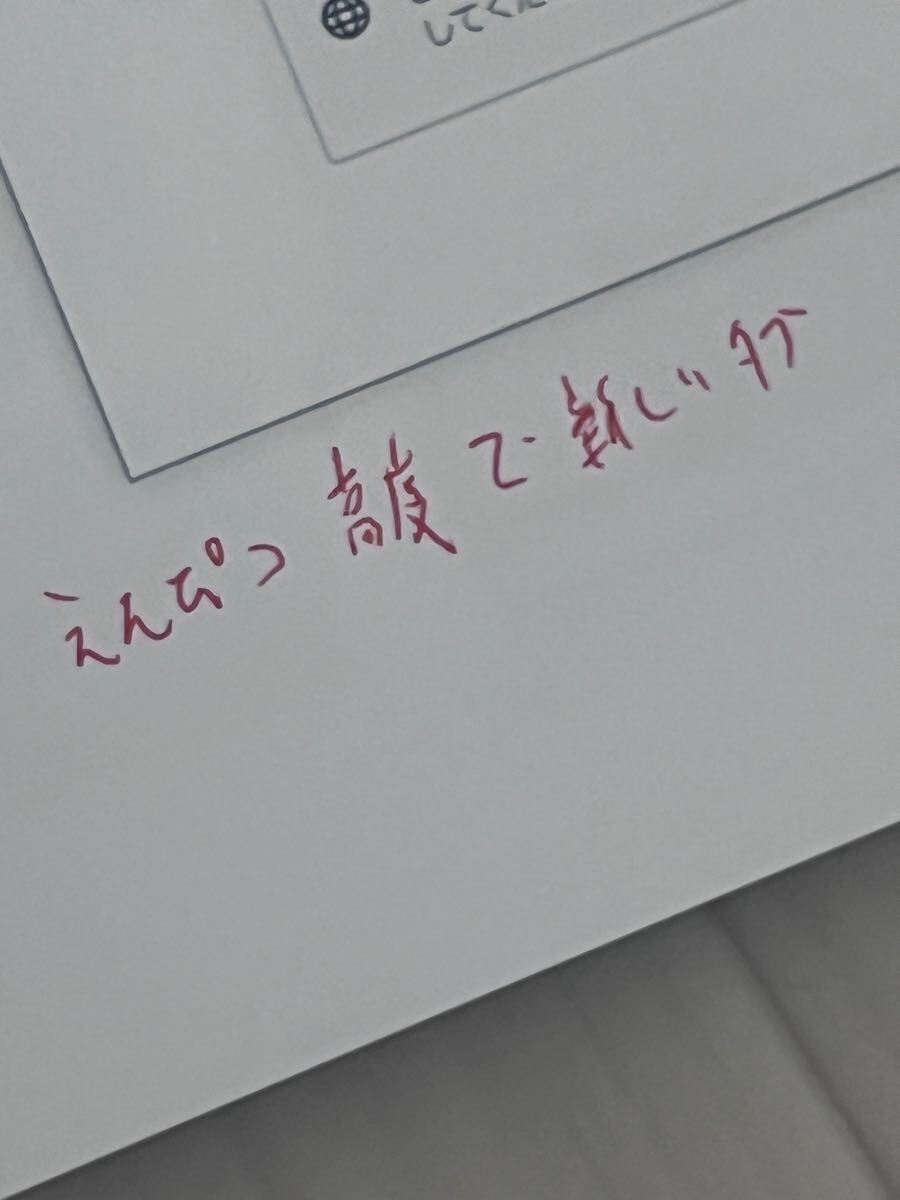 してくだ
えんぴつ 高度で難しい